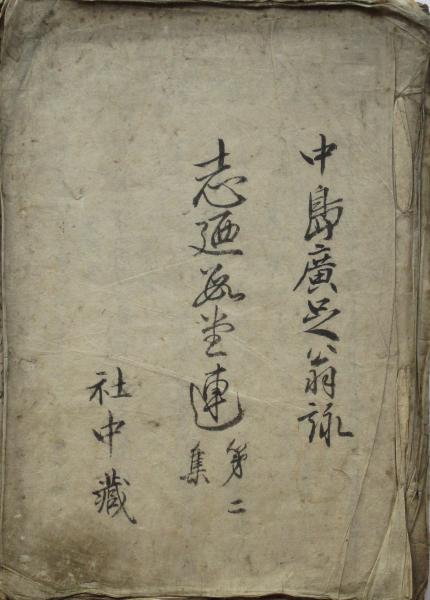 中島廣足翁詠
志廼数堂連 第二集
社中藏